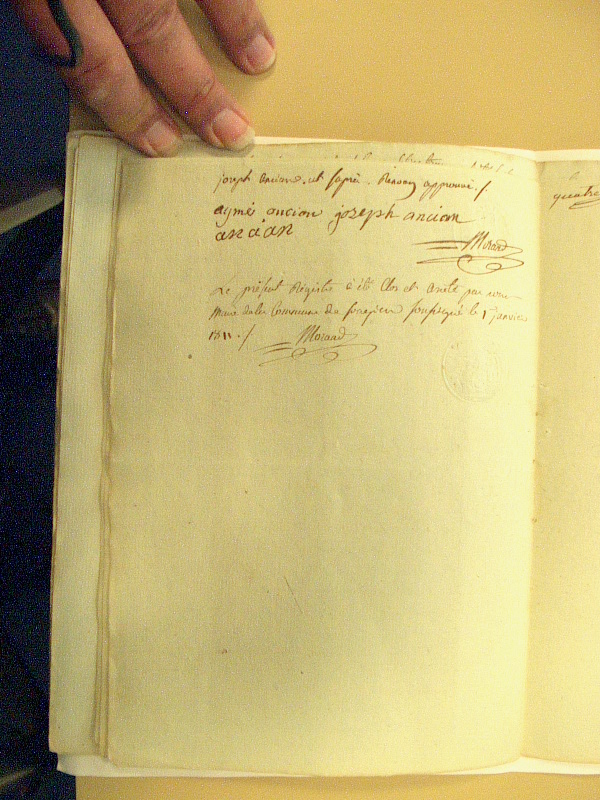 joseph ancian. et sapré. Renvoy approuvé ./
aymé ancian joseph ancian
ancian
Morand
Le présent Registre à été Clos et arrêté par nous
Maire de la Commune de soussigné le 1er janvier
1811 ./ Morand
quatre